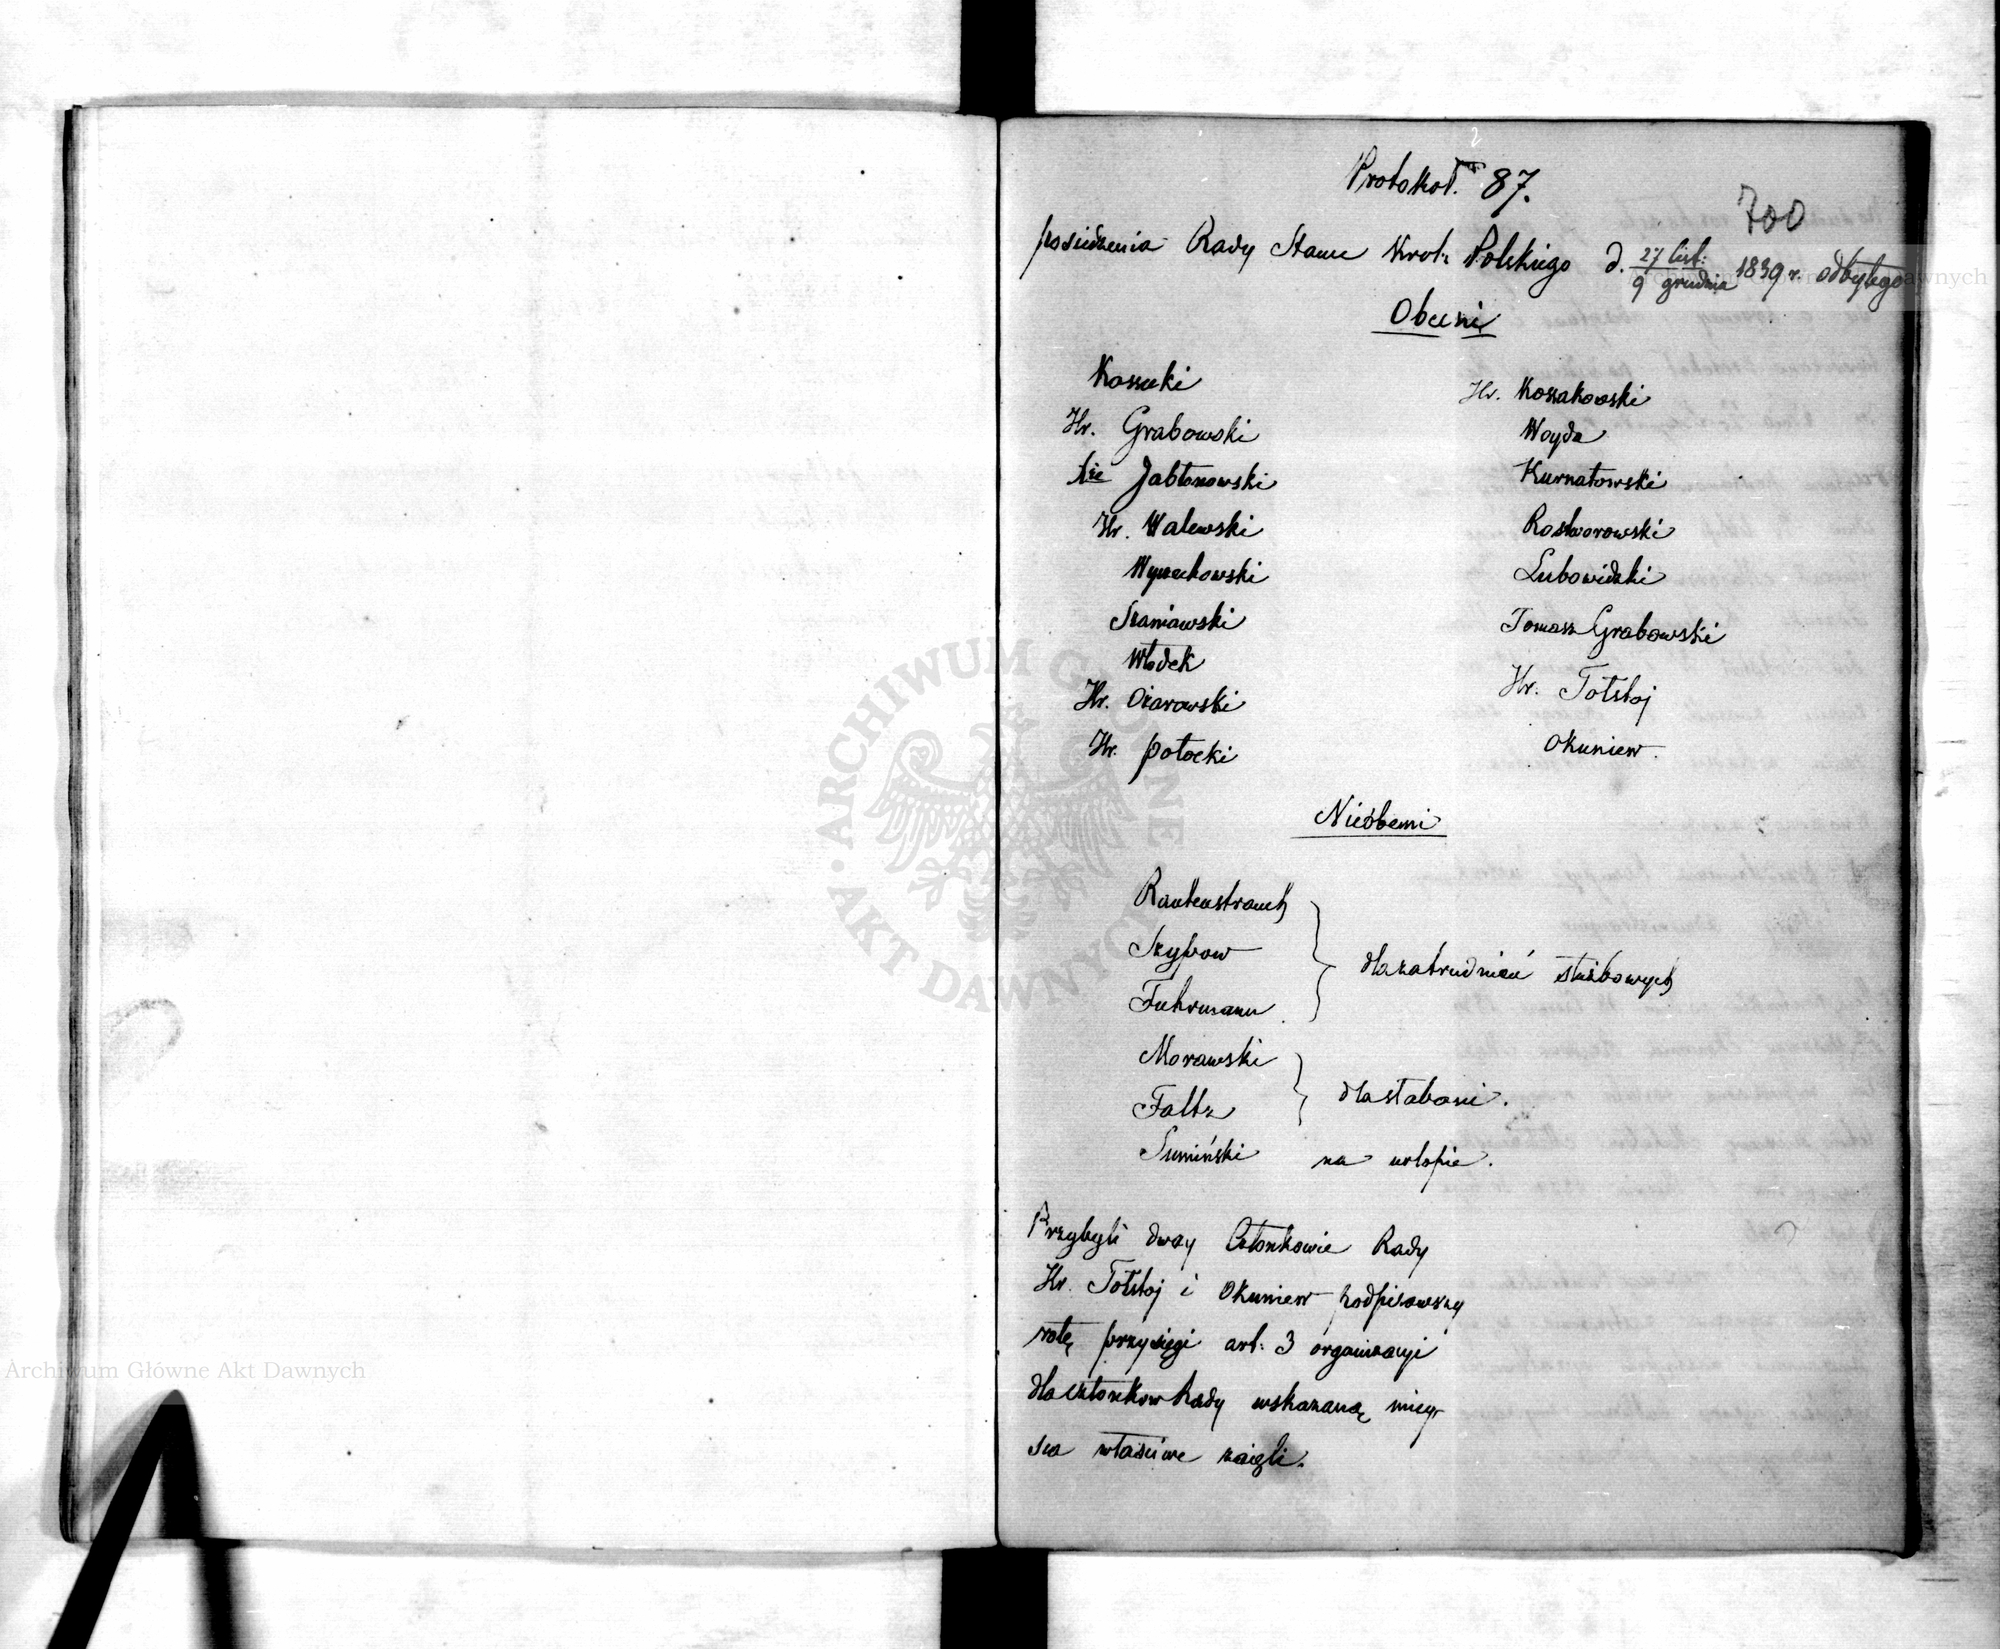 Protokoł 87.
700
posiedzenia Rady Stanu Król: Polskiego d. 27 list: / 9 grudnia 1839 r. odbytego
Obecni
Kossecki
Hr. Grabowski
Xże Jabłonowski
Hr. Walewski
Wyczechowski
Szaniawski
Włodek
Hr. Ożarowski
Hr. Potocki
Hr. Kossakowski
Woyda
Kurnatowski
Rostworowski
Lubowidzki
Tomasz Grabowski
Hr. Tołstoj
Okuniew.
Nieobecni
Rautenstrauch
Szypow
Fuhrmann
dla zatrudnień służbowych
Morawski
Faltz
dla słabości.
Sumiński na urlopie.
Przybyli dway Członkowie Rady
Hr. Tołstoj i Okuniew podpisawszy
rotę przysięgi art: 3 organizacyi
dla członków Rady wskazaną miey-
sca właściwe zaięli.
ARCHIWUM GŁÓWNE AKT DAWNYCH
Archiwum Główne Akt Dawnych
Archiwum Główne Akt Dawnych